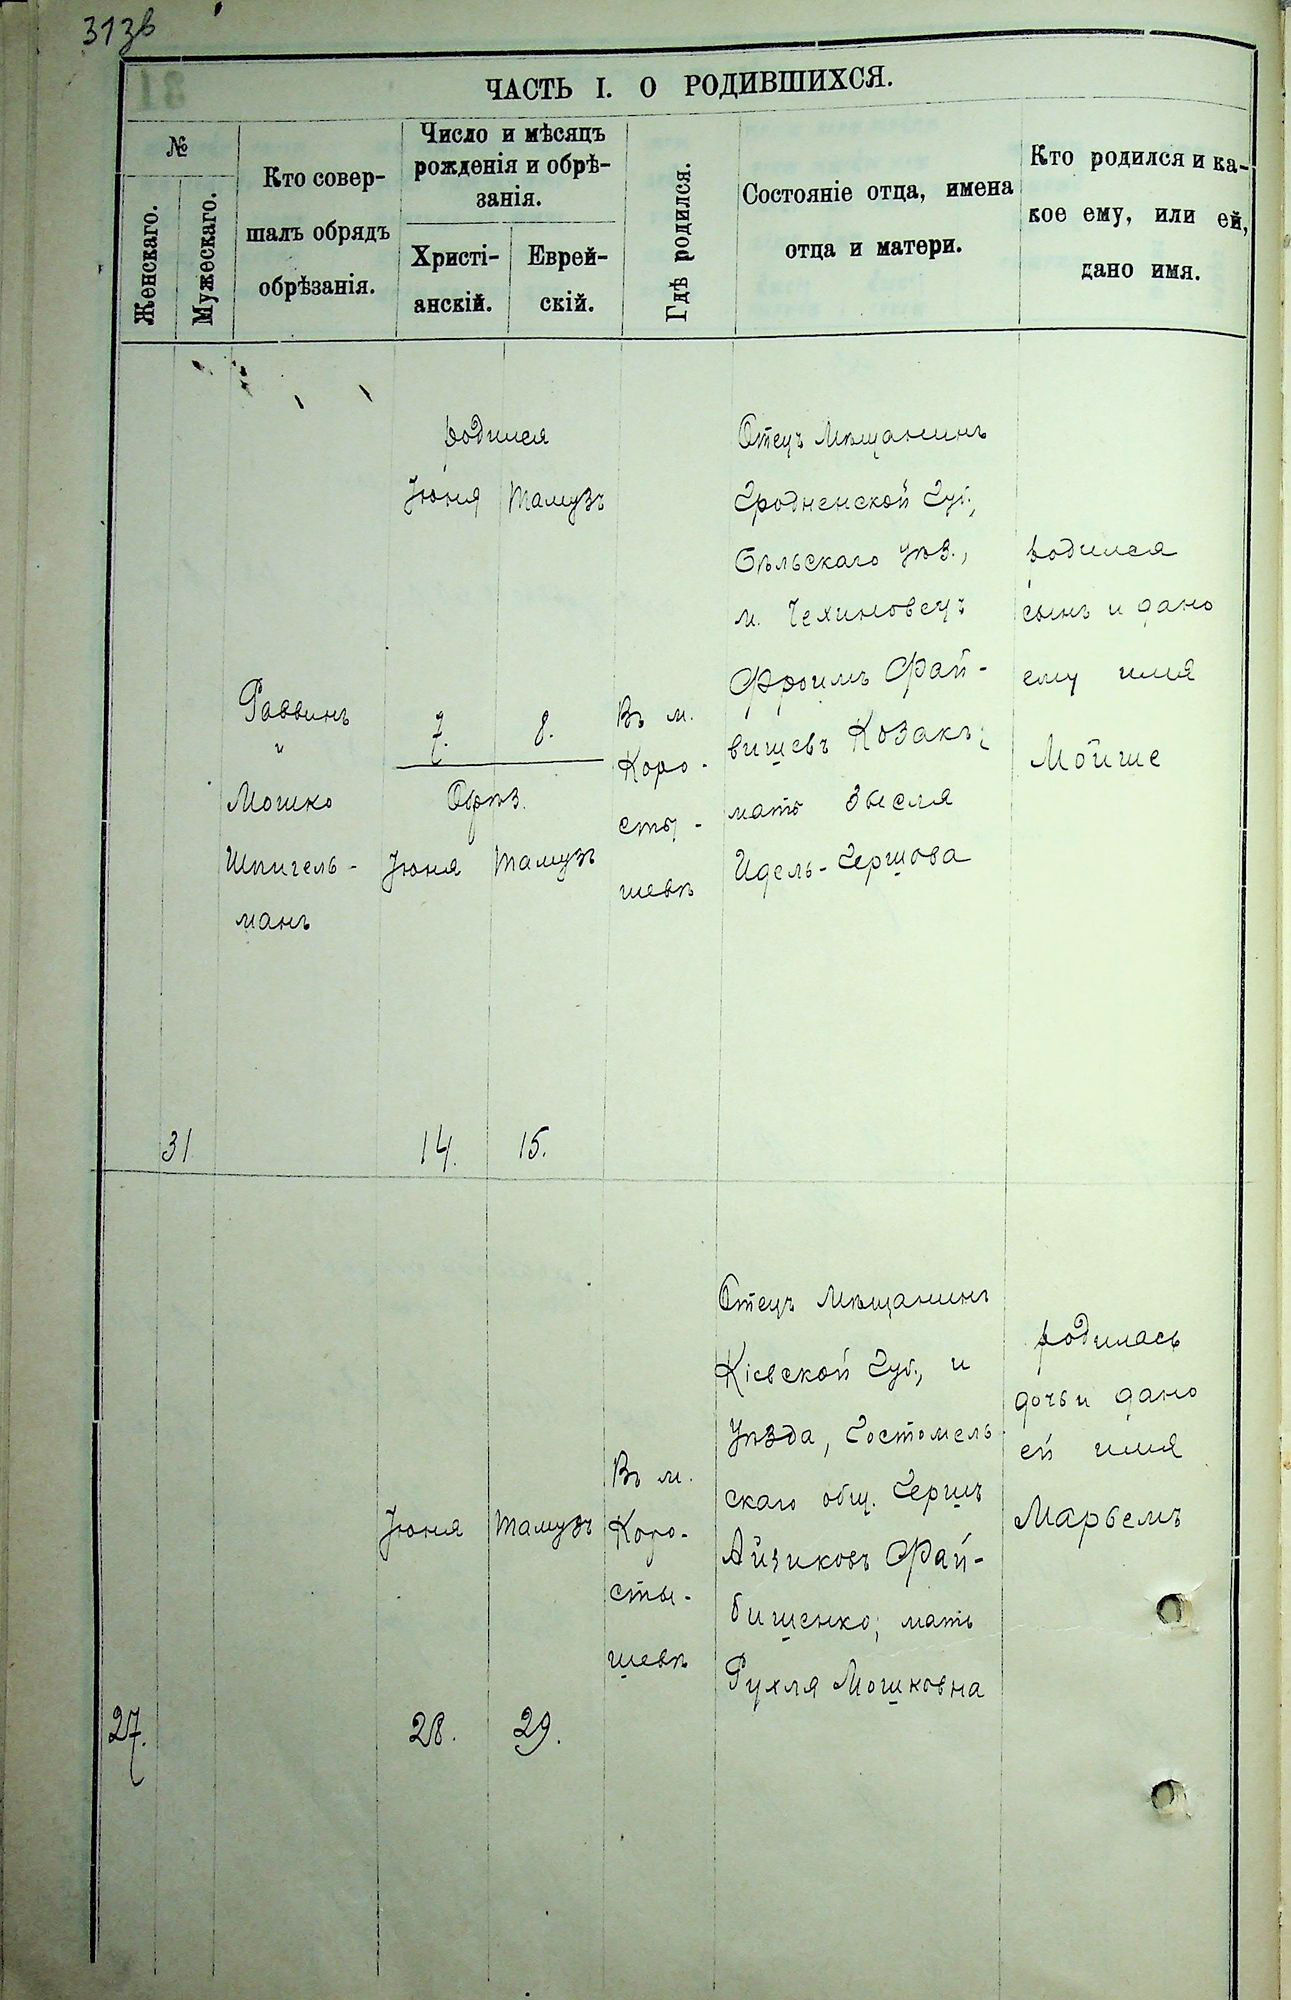 313в
ЧАСТЬ I. О РОДИВШИХСЯ.
№
Женскаго.
Мужескаго.
Кто совер-
шалъ обрядъ
обрѣзанія.
Число и мѣсяцъ
рожденія и обрѣ-
занія.
Христі-
анскій.
Еврей-
скій.
Гдѣ родился.
Состояніе отца, имена
отца и матери.
Кто родился и ка-
кое ему, или ей,
дано имя.
31
Раввинъ
и
Мошко
Шпигель-
манъ
родился
Іюня Тамузъ
7. 8.
Обрѣз.
Іюня Тамузъ
14. 15.
Въ м.
Коро-
сты-
шевѣ
Отецъ Мѣщанинъ
Гродненской Губ.,
Бѣльскаго уѣз.,
м. Чехиновецъ
Фроимъ Фай-
вишевъ Козакъ;
мать Зысля
Идель-Гершова
родился
сынъ и дано
ему имя
Мойше
27.
Іюня Тамузъ
28. 29.
Въ м.
Коро-
сты-
шевѣ
Отецъ Мѣщанинъ
Кіевской Губ., и
уѣзда, Гостомель-
скаго общ. Гершъ
Айзиковъ Фай-
бишенко; мать
Рухля Мошковна
родилась
дочь и дано
ей имя
Марьемъ